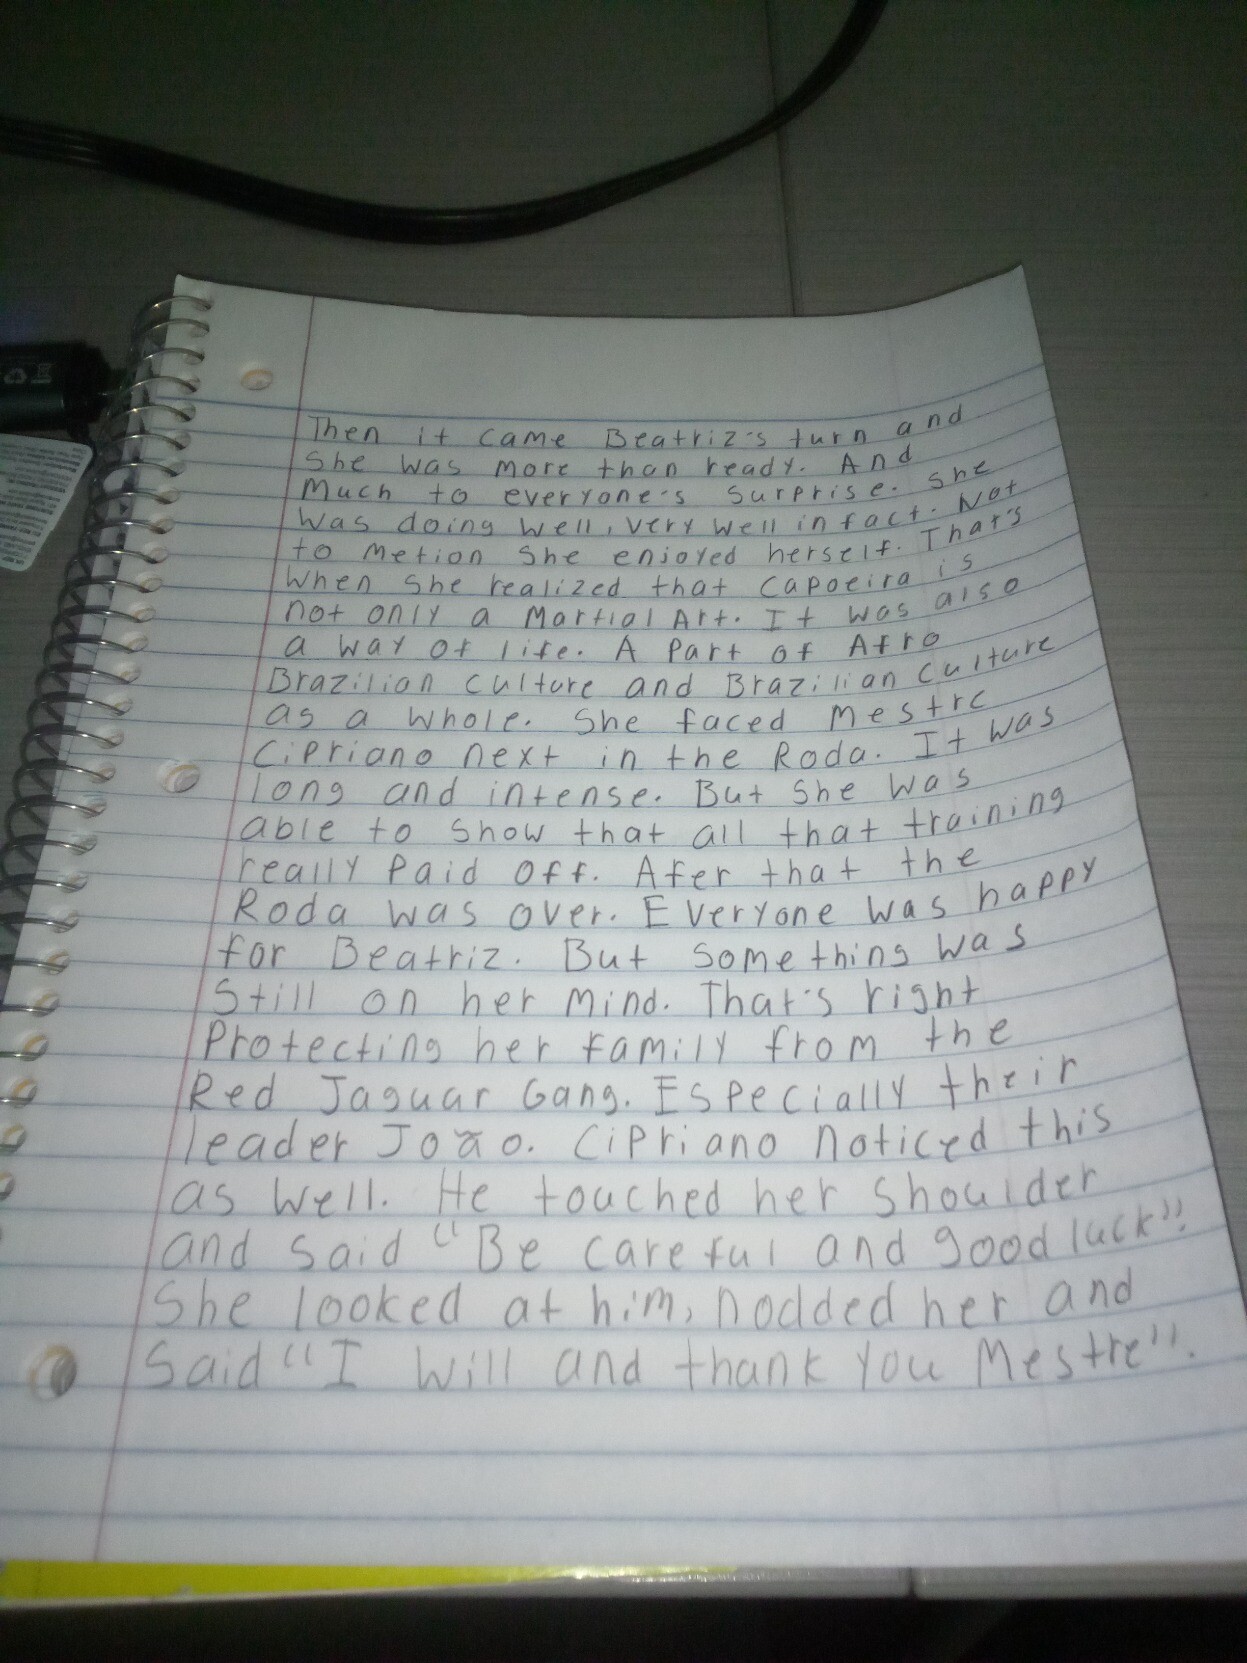 Then it came Beatriz's turn and
she was more than ready. And
Much to everyone's surprise. She
was doing well, very well in fact. Not
to metion she enjoyed herself. That's
when she realized that capoeira is
not only a Martial Art. It was also
a way of life. A part of Afro
Brazilian culture and Brazilian culture
as a whole. She faced Mestre
Cipriano next in the Roda. It was
long and intense. But she was
able to show that all that training
really paid off. Afer that the
Roda was over. Everyone was happy
for Beatriz. But something was
still on her mind. That's right
Protecting her family from the
Red Jaguar Gang. Especially their
leader João. Cipriano noticed this
as well. He touched her shoulder
and said "Be careful and good luck".
She looked at him, nodded her and
said "I will and thank you Mestre".